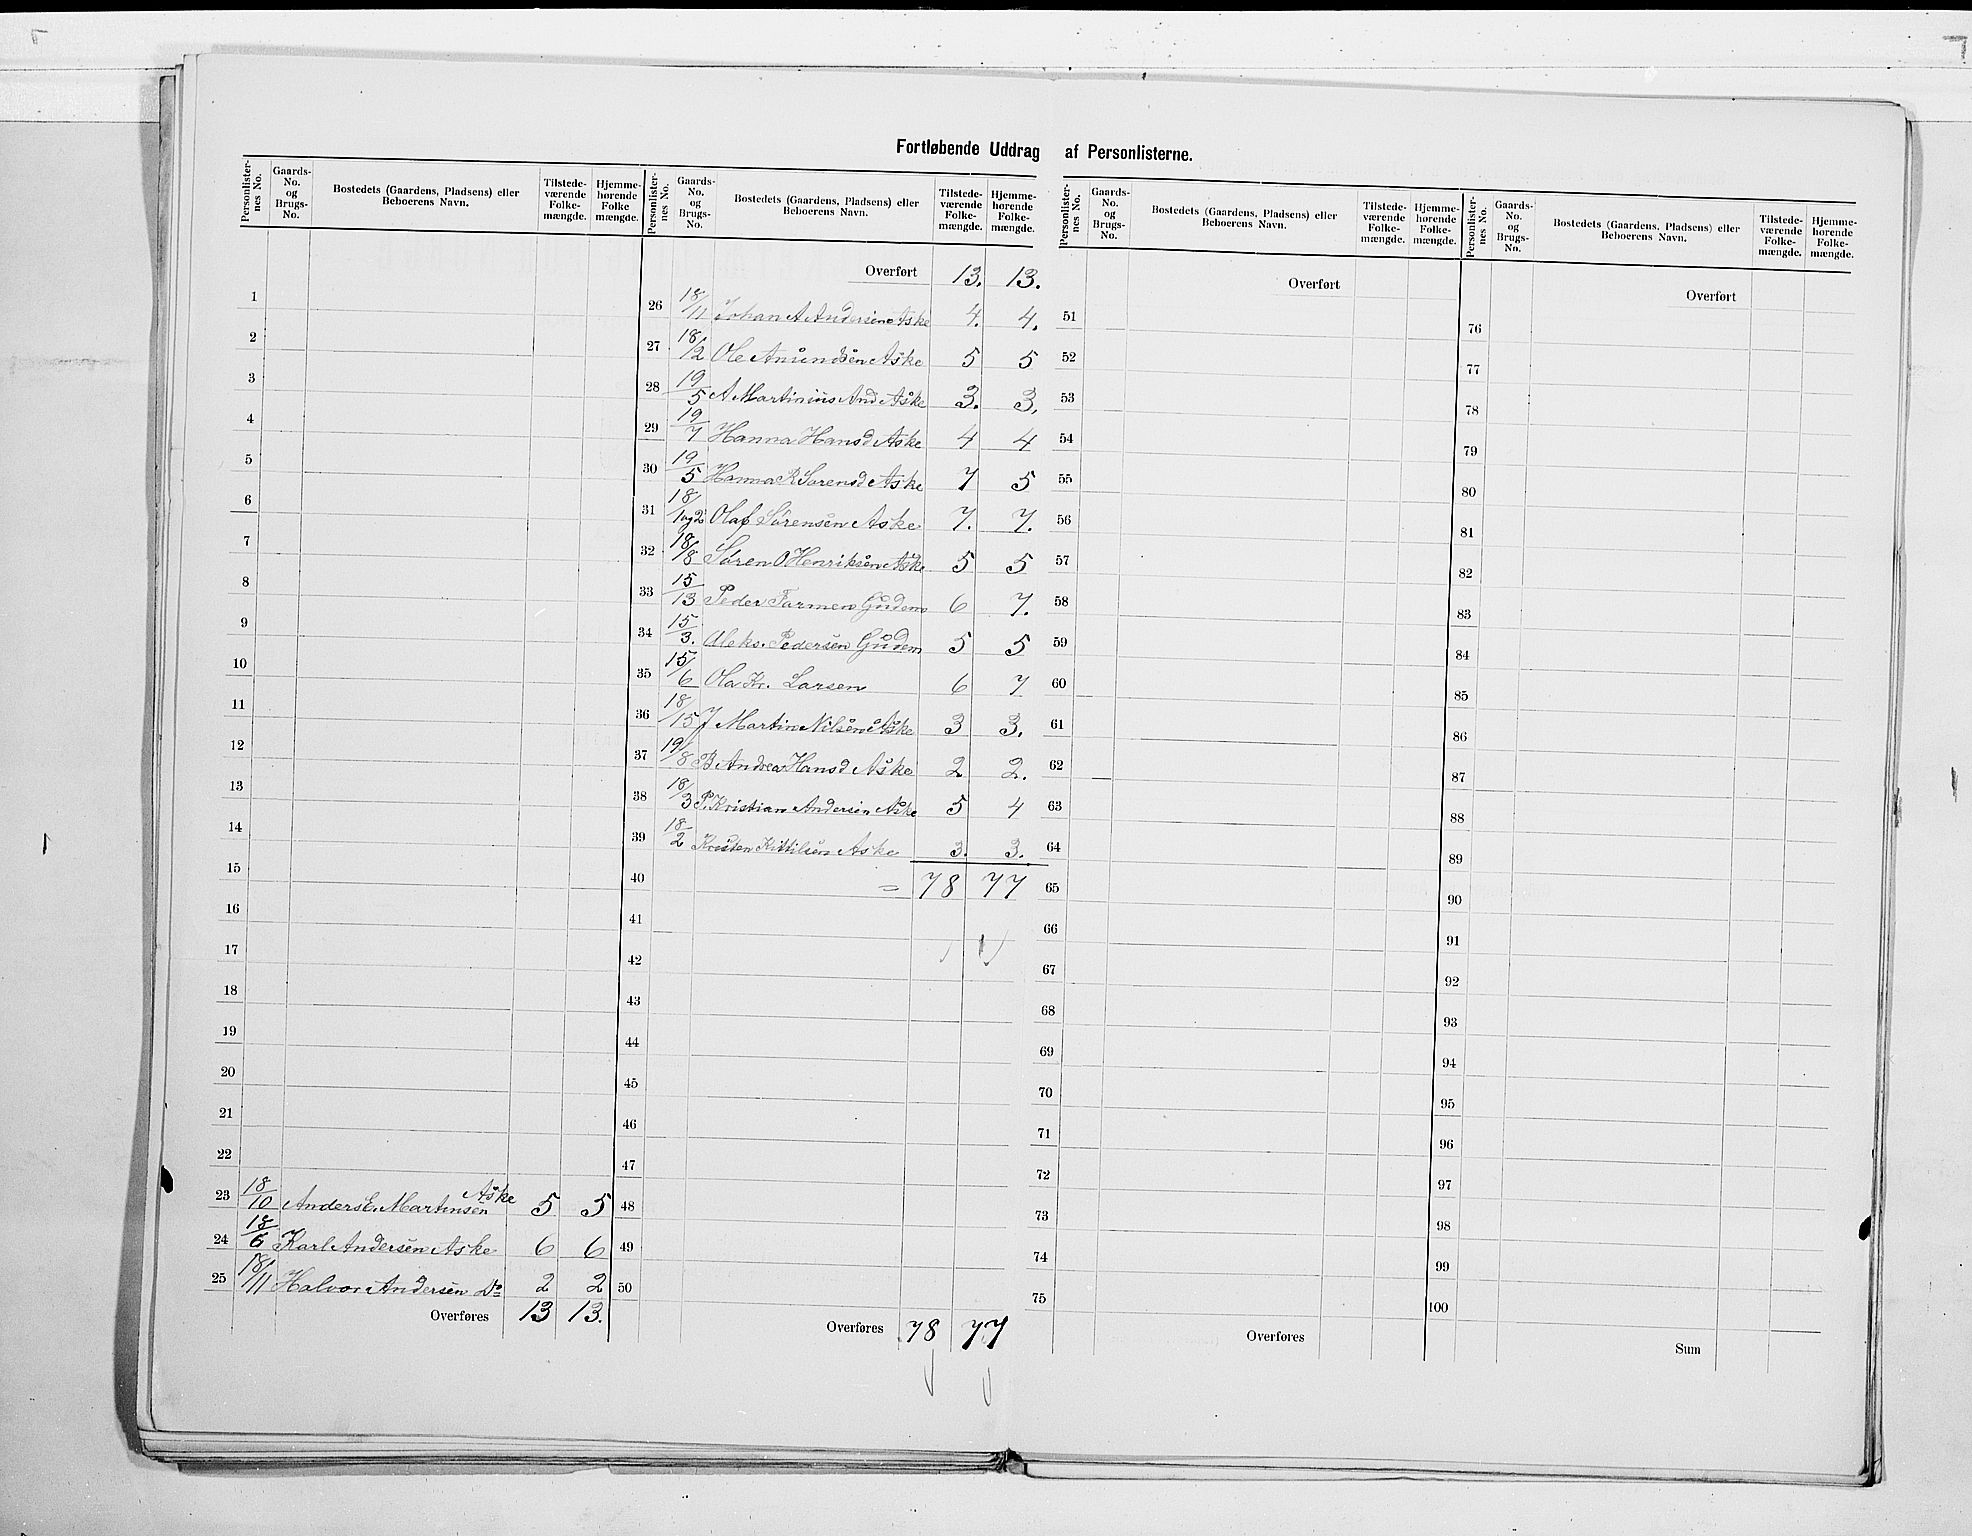 Fortløbende Uddrag af Personlisterne.
Personlister-nes No. | Gaards-No. og Brugs-No. | Bostedets (Gaardens, Pladsens) eller Beboerens Navn. | Tilstede-værende Folke-mængde. | Hjemme-hørende Folke mængde.
1
2
3
4
5
6
7
8
9
10
11
12
13
14
15
16
17
18
19
20
21
22
23 18/10 Anders E. Martinsen Aske 5 5
24 18/6 Karl Andersen Aske 6 6
25 18/11 Halvor Andersen Do 2 2
Overføres 13 13.
Personlister-nes No. | Gaards-No. og Brugs-No. | Bostedets (Gaardens, Pladsens) eller Beboerens Navn. | Tilstede-værende Folke-mængde. | Hjemme-hørende Folke-mængde.
Overført 13. 13.
26 18/11 Johan A Andersen Aske 4. 4.
27 18/2 Ole Amundsen Aske 5 5
28 19/5 A Martinius And Aske 3. 3.
29 19/7 Hanna Hansd Aske 4 4
30 19/5 Hanna R Sorensd Aske 7 5
31 18/1og2 Olaf Sørensen Aske 7. 7.
32 18/8 Søren O Henriksen Aske 5 5
33 15/13 Peder Farmen Gudem 6 7.
34 15/3. Aleks. Pedersen Gudem 5 5
35 15/6 Ola Kr. Larsen 6 7
36 18/15 J Martin Nilsen Aske 3 3.
37 19/8 B Andrea Hansd Aske 2 2.
38 18/3 P. Kristian Andersen Aske 5 4
39 18/2 Kresten Kittilsen Aske 3. 3.
40 = 78 77
41
42
43
44
45
46
47
48
49
50
Overføres 78 77
Personlister-nes No. | Gaards-No. og Brugs-No. | Bostedets (Gaardens, Pladsens) eller Beboerens Navn. | Tilstede-værende Folke-mængde. | Hjemme-hørende Folke-mængde.
Overført
51
52
53
54
55
56
57
58
59
60
61
62
63
64
65
66
67
68
69
70
71
72
73
74
75
Overføres
Personlister-nes No. | Gaards-No. og Brugs-No. | Bostedets (Gaardens, Pladsens) eller Beboerens Navn. | Tilstede-værende Folke-mængde. | Hjemme-hørende Folke-mængde.
Overført
76
77
78
79
80
81
82
83
84
85
86
87
88
89
90
91
92
93
94
95
96
97
98
99
100
Sum